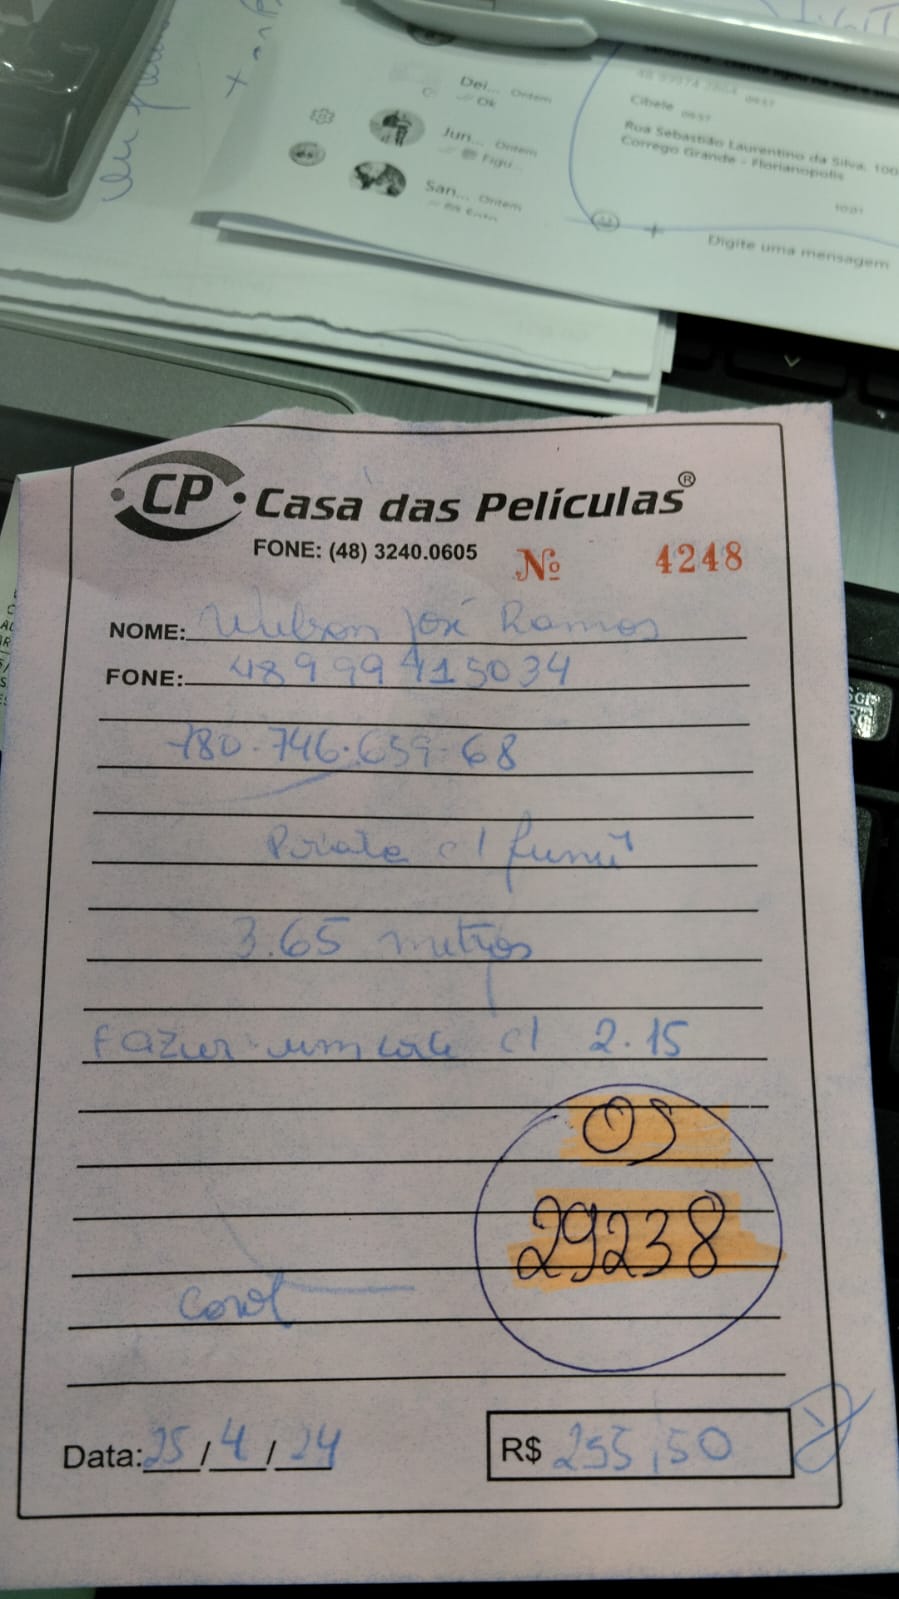 Dei... Ontem
Ok
Jun... Ontem
Figu...
San... Ontem
Cibele
Rua Sebastião Laurentino da Silva, 100
Corrego Grande - Florianopolis
Digite uma mensagem
CP Casa das Películas®
FONE: (48) 3240.0605 Nº 4248
NOME: Wilson José Ramos
FONE: 48999415034
780.746.659-68
Prata c/ fumê
3.65 metros
Fazer um corte c/ 2.15
OS
29238
Data: 25/4/24 R$ 255,50